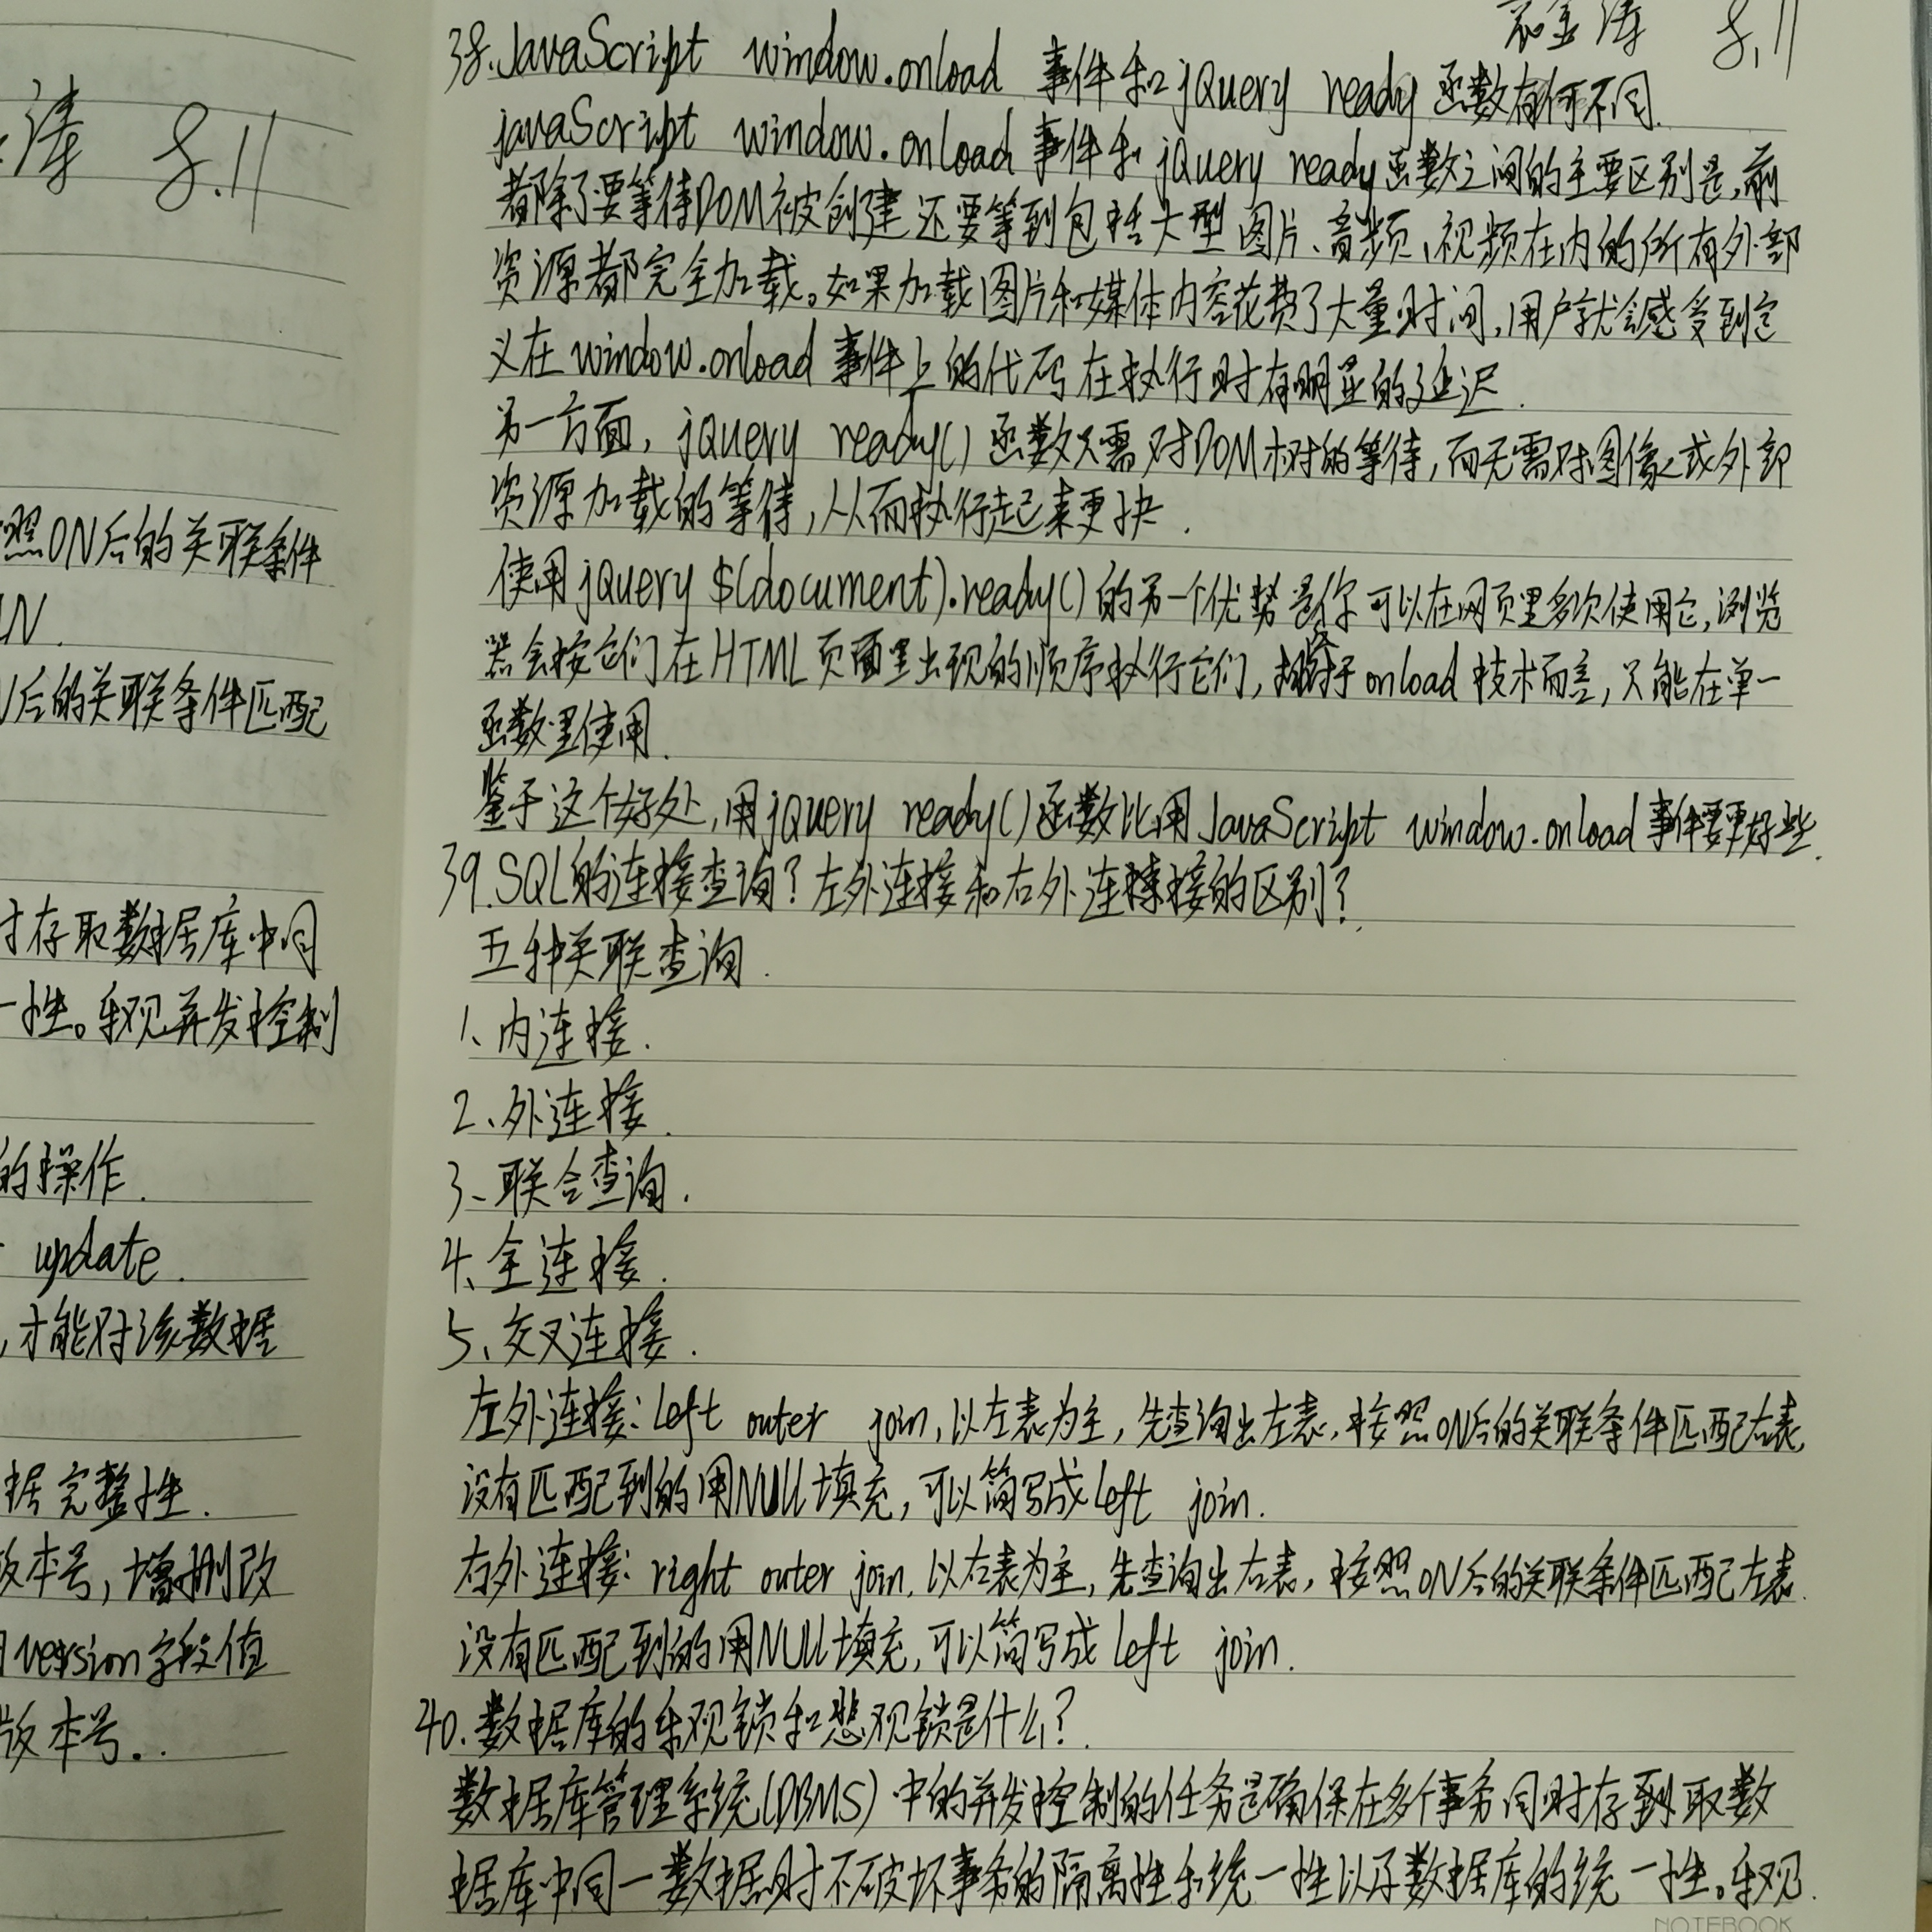 涛 8.11
照ON后的关联条件
IN.
后的关联条件匹配
时存取数据库中同
一性。乐观并发控制
的操作.
update.
,才能对该数据
据完整性.
版本号,增删改
version字段值
版本号..
涛 8.11
38.JavaScript window.onload 事件和jQuery ready 函数有何不同.
javaScript window.onload 事件和 jQuery ready函数之间的主要区别是,前
者除了要等待DOM被创建还要等到包括大型图片、音频、视频在内的所有外部
资源都完全加载。如果加载图片和媒体内容花费了大量时间,用户就会感受到定
义在window.onload 事件上的代码在执行时有明显的延迟.
另一方面, jQuery ready()函数只需对DOM树的等待,而无需对图像或外部
资源加载的等待,从而执行起来更快.
使用jQuery $(document).ready()的另一个优势是你可以在网页里多次使用它,浏览
器会按它们在HTML页面里出现的顺序执行它们,相对于onload技术而言,只能在单一
函数里使用.
鉴于这个好处,用jQuery ready()函数比用JavaScript window.onload事件要更好些.
39.SQL的连接查询?左外连接和右外连接的区别?
五种关联查询.
1、内连接.
2、外连接.
3、联合查询.
4、全连接.
5、交叉连接.
左外连接:left outer join,以左表为主,先查询出左表,按照ON后的关联条件匹配右表,
没有匹配到的用NULL填充,可以简写成left join.
右外连接:right outer join,以右表为主,先查询出右表,按照ON后的关联条件匹配左表.
没有匹配到的用NULL填充,可以简写成left join.
40.数据库的乐观锁和悲观锁是什么?
数据库管理系统(DBMS)中的并发控制的任务是确保在多个事务同时存取数
据库中同一数据时不破坏事务的隔离性和统一性以及数据库的统一性。乐观
NOTEBOOK